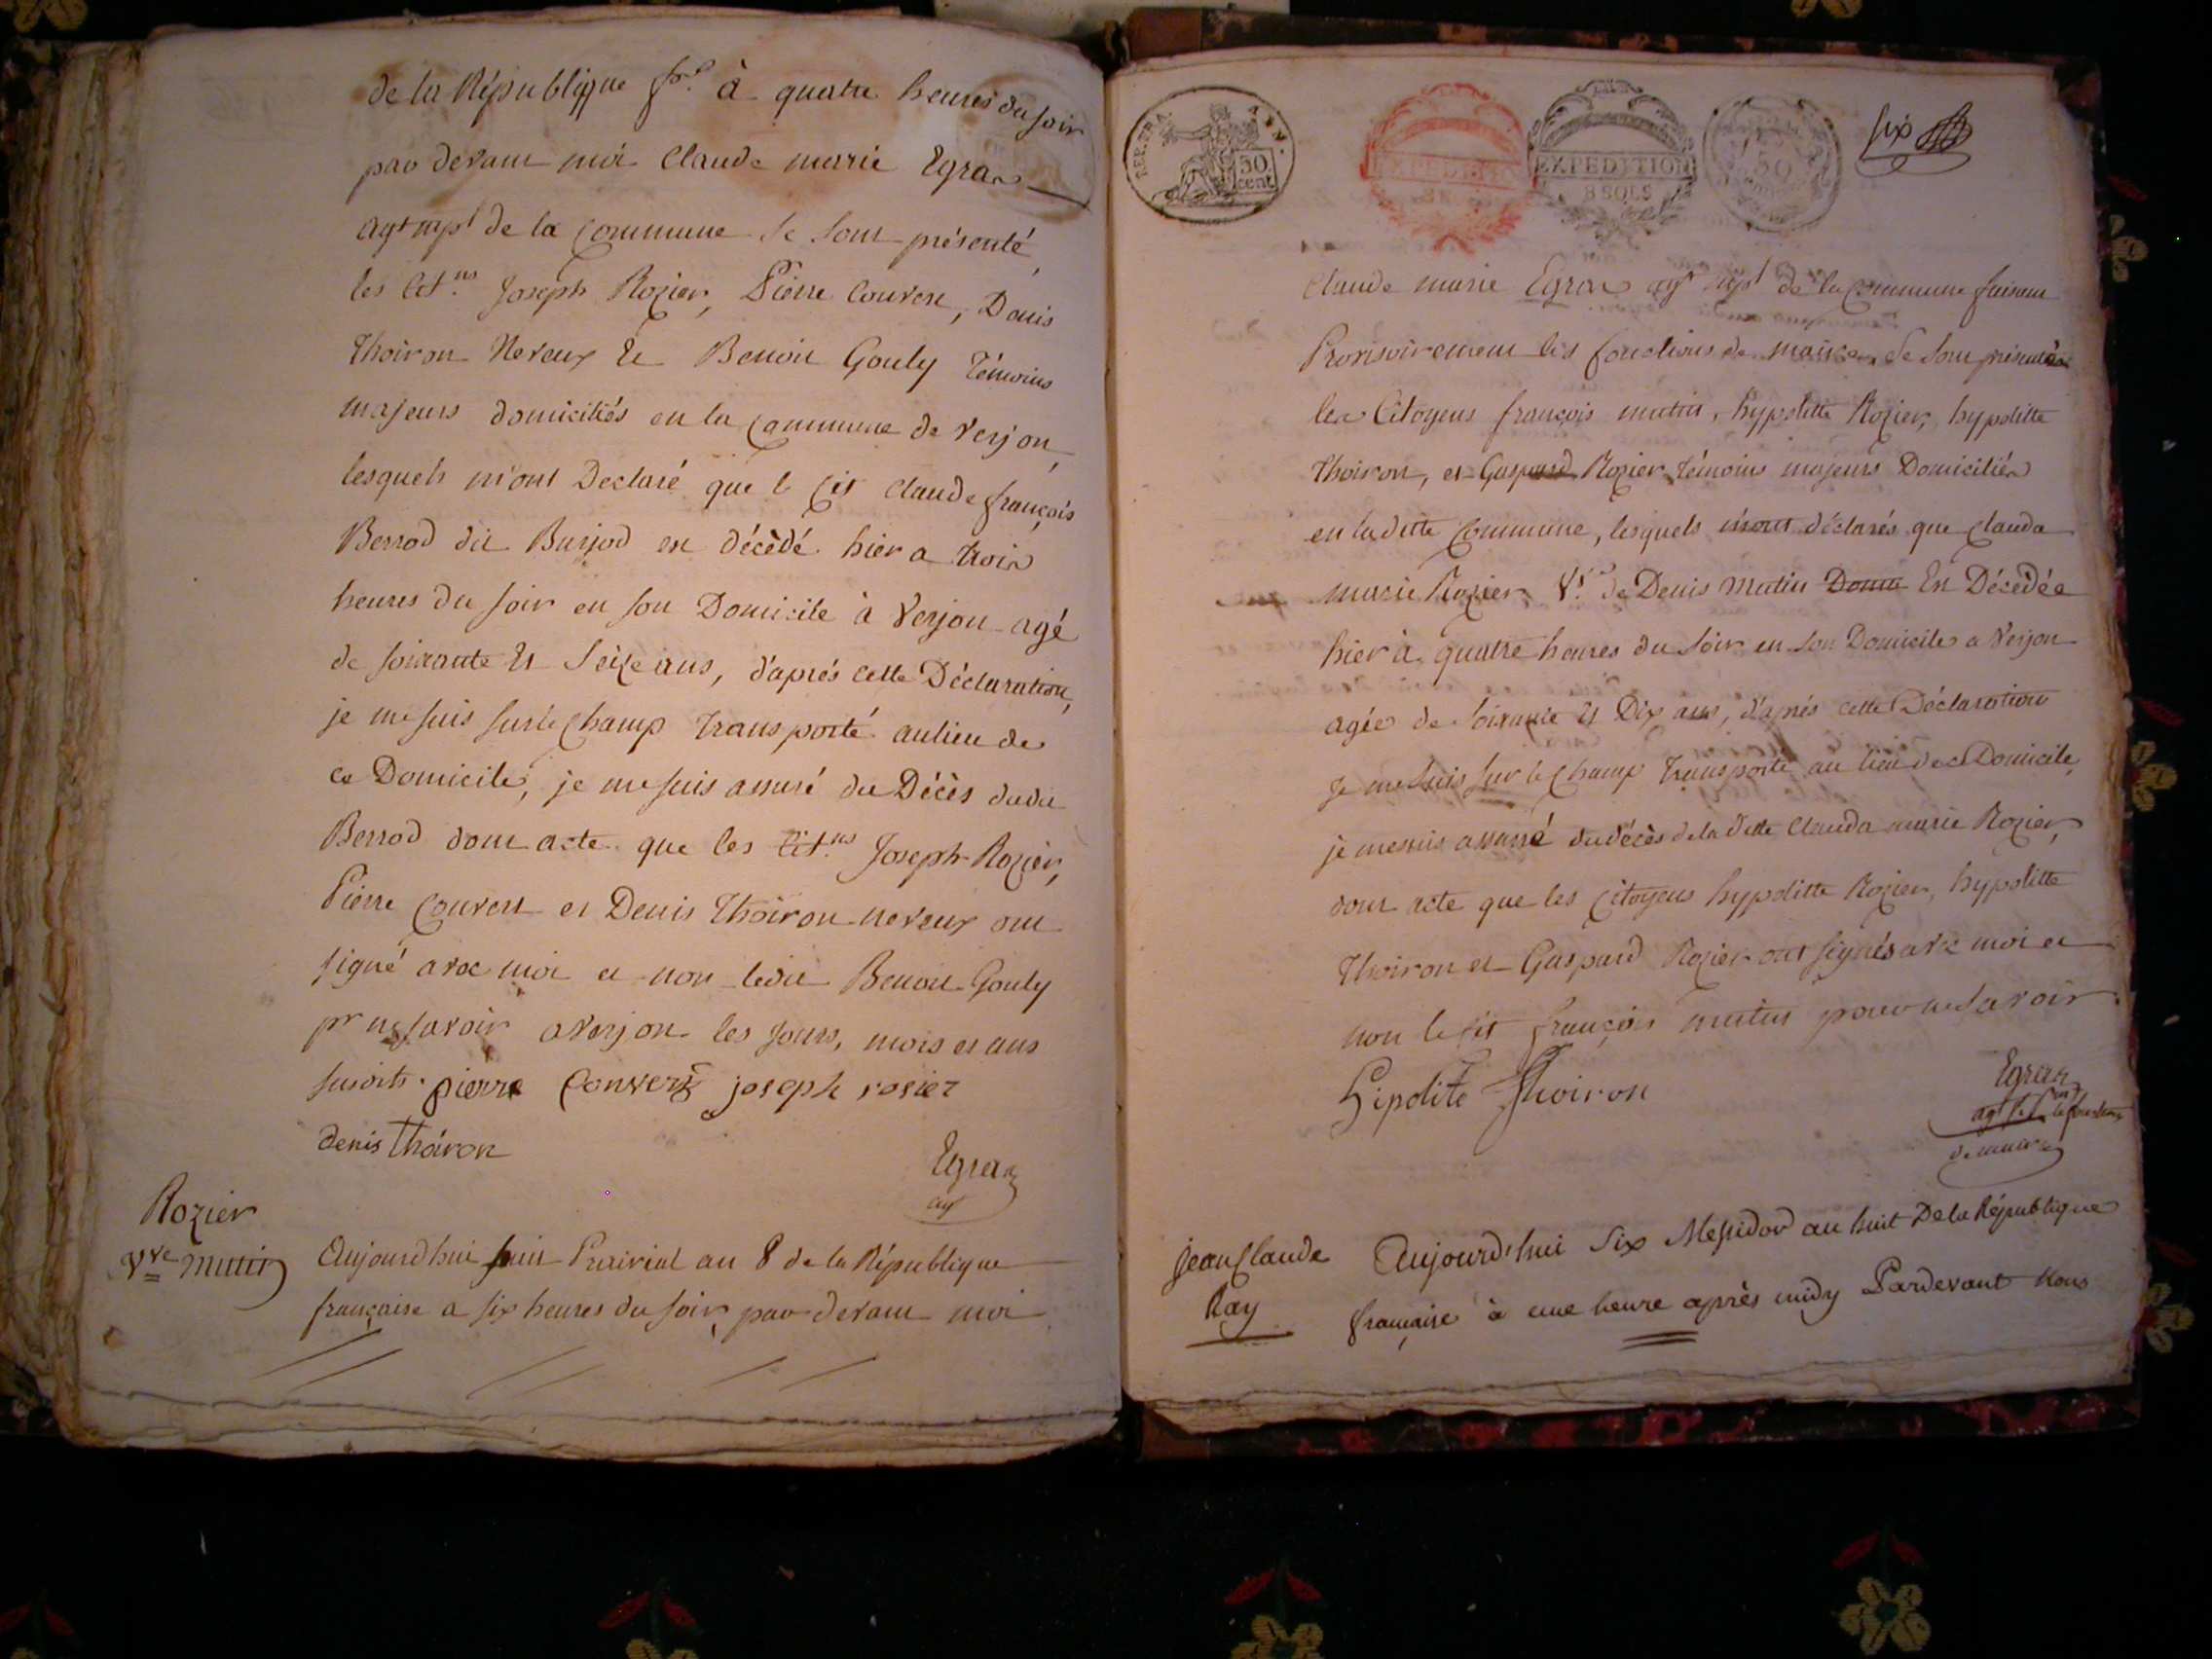 de la République fr.e à quatre heures du soir
par devant moi Claude marie Egraz
agt mpl de la Commune se sont présenté
les cit.ns Joseph Rozier, Pierre Convert, Denis
Thoiron Neveux Et Benoit Gouly Témoins
majeurs domiciliés en la Commune de Verjon,
lesquels m'ont Declaré que le Cit Claude françois
Berrod dit Burjod est décédé hier a trois
heures du soir en son Domicile à Verjon agé
de soixante Et Seize ans, d'aprés cette Déclaration,
je me suis sur le Champ transporté au lieu de
ce Domicile, je me suis assuré du Décès dudit
Berrod dont acte que les Cit.ns Joseph Rozier,
Pierre Convert et Denis Thoiron neveux ont
signé avec moi et non ledit Benoit Gouly
pr ne savoir a Verjon les jours, mois et ans
susdits. pierre Convert joseph rosier
denis thoiron
Egraz
agt
Rozier
Vve Mutin
Aujourdhui huit Prairial an 8 de la République
française a six heures du soir par devant moi
REP. FRA.
50 cent
EXPEDITION
EXPEDITION
8 SOLS
50
six
Claude marie Egraz agt mpl de la Commune faisant
Provisoirement les fonctions de maire Se sont présentés
les Citoyens françois mutin, hypolitte Rozier, hypolitte
Thoiron, et Gaspard Rozier témoins majeurs Domiciliés
en la ditte Commune, lesquels m'ont déclarés que Clauda
marie Rozier Ve de Denis Mutin Est Décédée
hier à quatre heures du soir en son Domicile a Verjon
agée de soixante Et Dix ans, d'aprés cette Déclaration
je me suis sur le Champ transporté au lieu de ce Domicile,
je me suis assuré du décès de la ditte Clauda marie Rozier,
dont acte que les Citoyens hypolitte Rozier, hypolitte
Thoiron et Gaspard Rozier ont signés avec moi et
non le cit françois mutin pour ne savoir
Hipolite Thoiron
Egraz
agt les fonctions
de maire
jean Claude
Ray
Aujourd'hui Six Messidor an huit De la République
française à une heure après midy Pardevant Nous